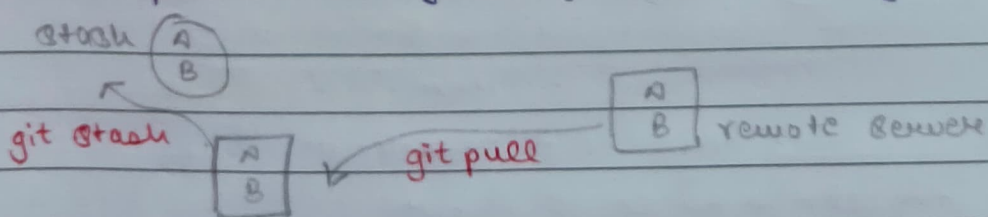 stash A
B
A
B remote server
git stash
git pull
A
B